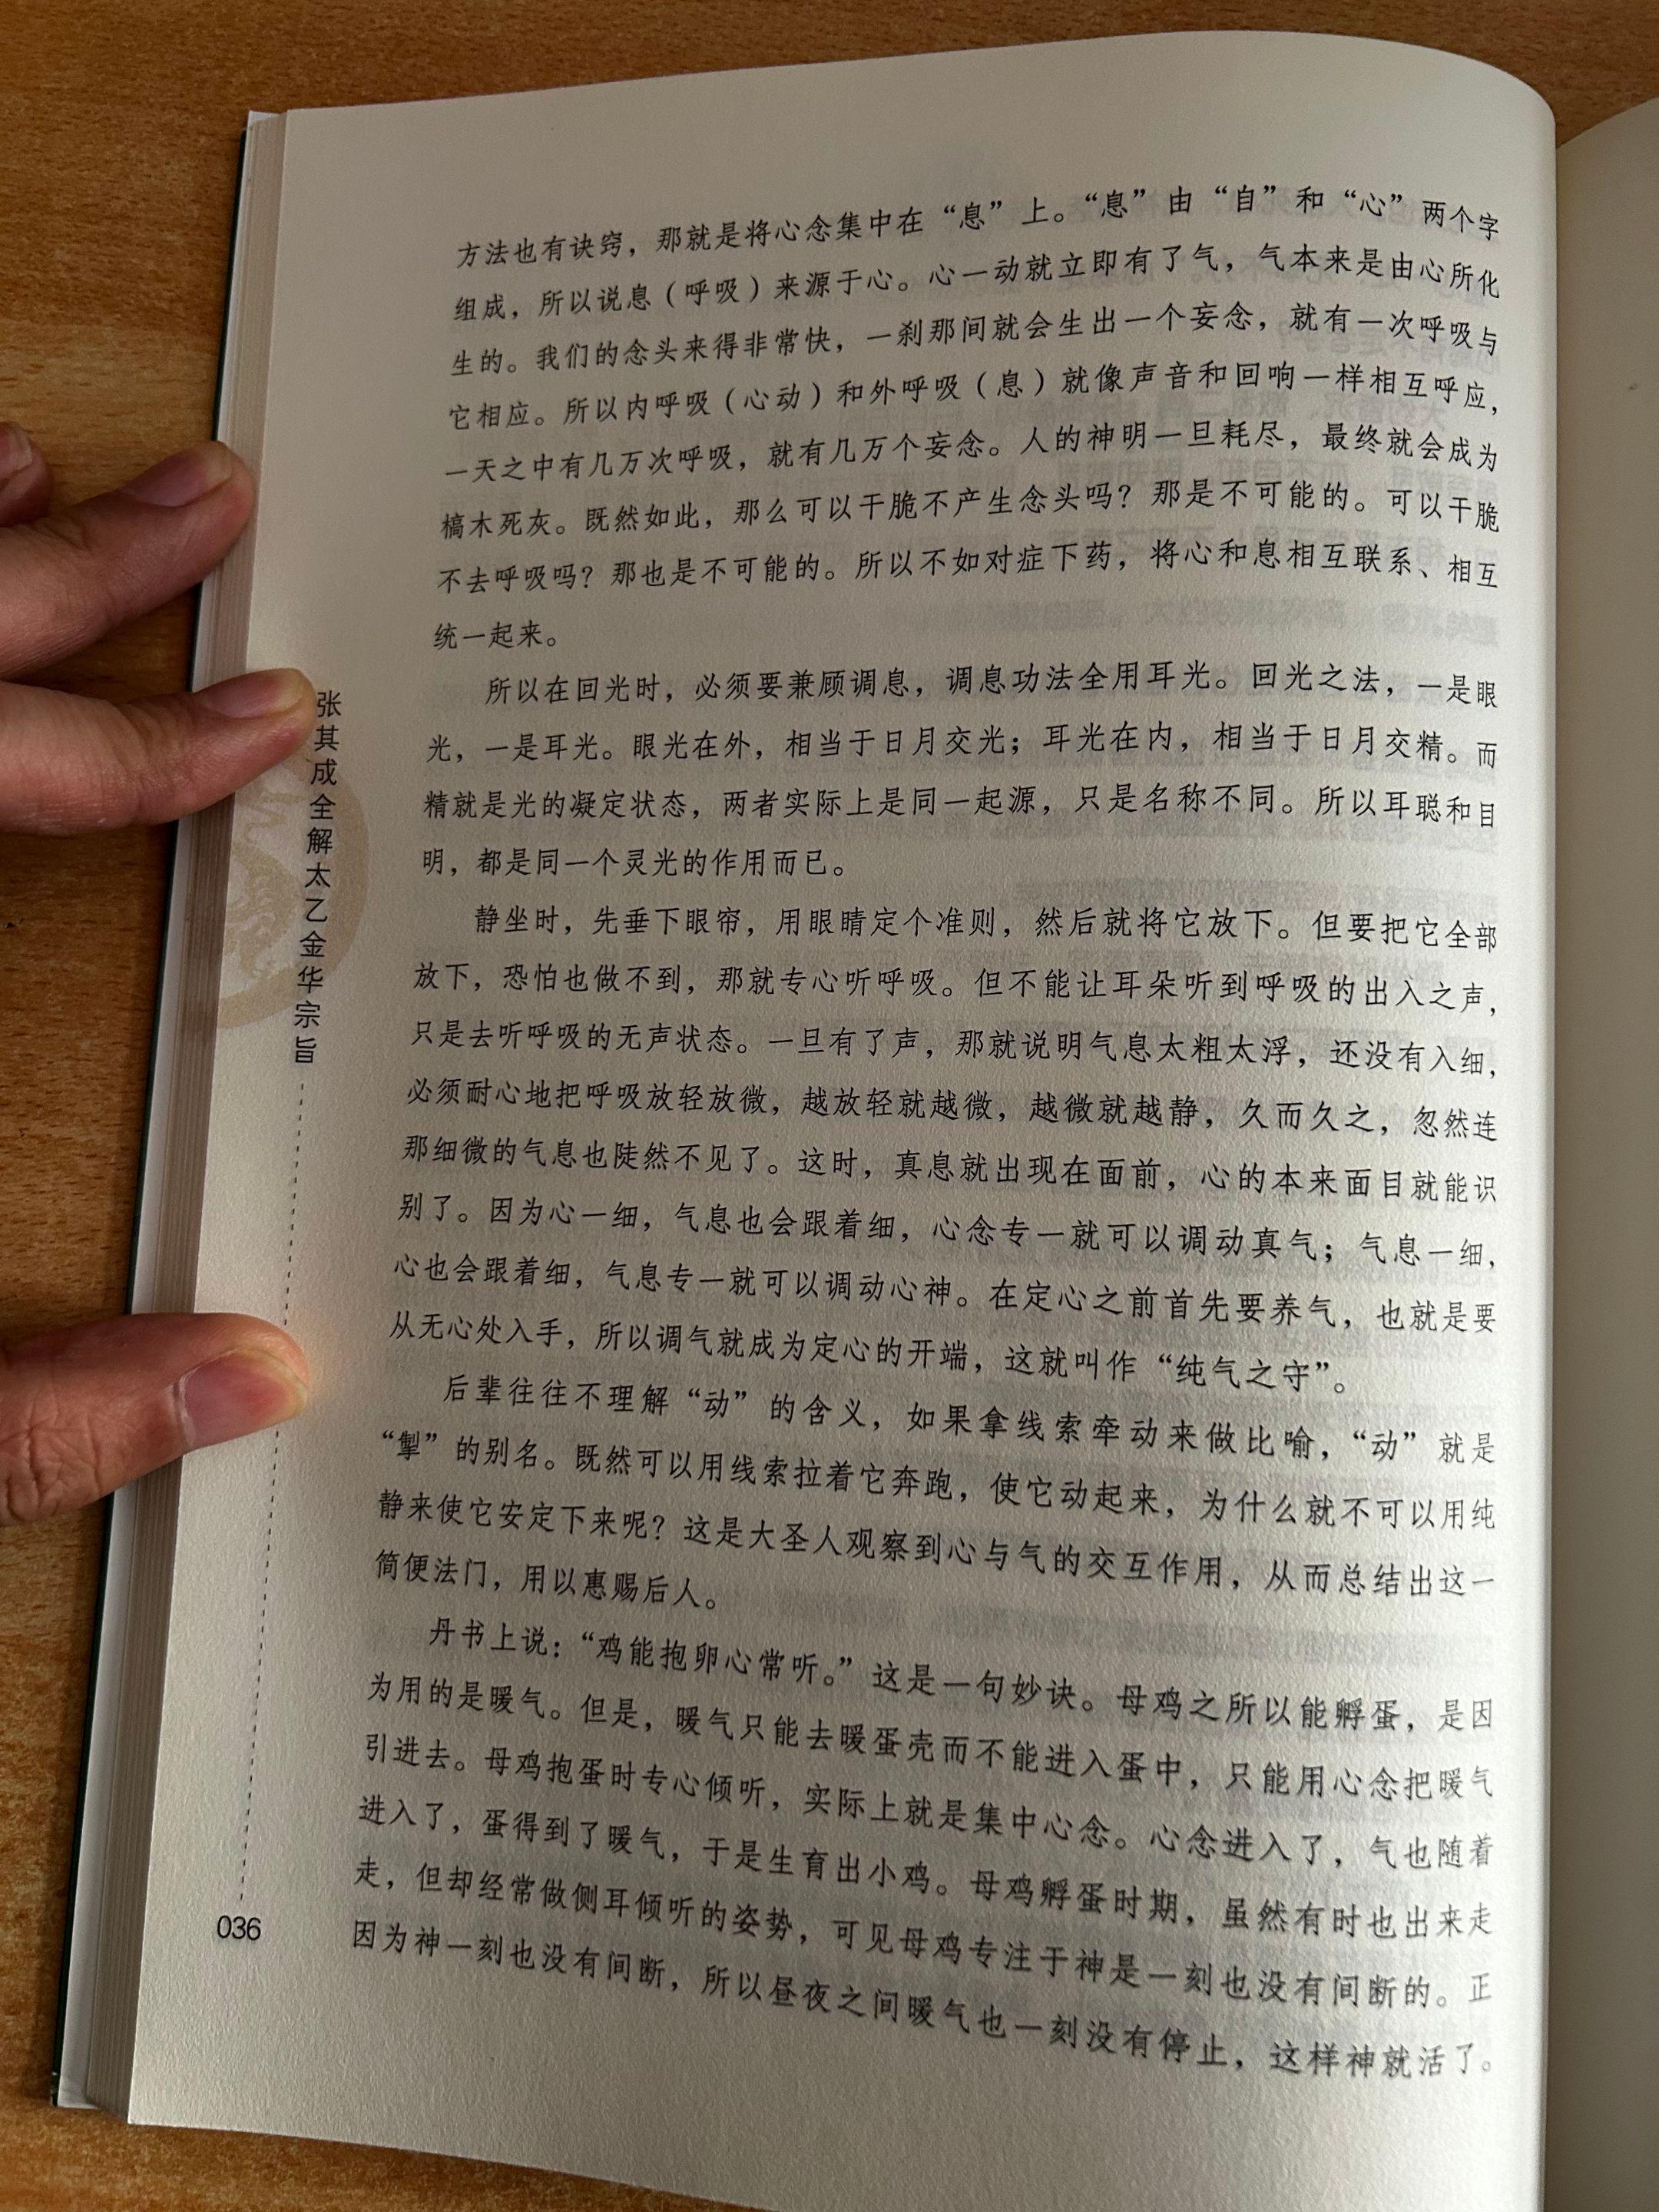 方法也有诀窍，那就是将心念集中在“息”上。“息”由“自”和“心”两个字
组成，所以说息（呼吸）来源于心。心一动就立即有了气，气本来是由心所化
生的。我们的念头来得非常快，一刹那间就会生出一个妄念，就有一次呼吸与
它相应。所以内呼吸（心动）和外呼吸（息）就像声音和回响一样相互呼应，
一天之中有几万次呼吸，就有几万个妄念。人的神明一旦耗尽，最终就会成为
槁木死灰。既然如此，那么可以干脆不产生念头吗？那是不可能的。可以干脆
不去呼吸吗？那也是不可能的。所以不如对症下药，将心和息相互联系、相互
统一起来。
所以在回光时，必须要兼顾调息，调息功法全用耳光。回光之法，一是眼
光，一是耳光。眼光在外，相当于日月交光；耳光在内，相当于日月交精。而
精就是光的凝定状态，两者实际上是同一起源，只是名称不同。所以耳聪和目
明，都是同一个灵光的作用而已。
静坐时，先垂下眼帘，用眼睛定个准则，然后就将它放下。但要把它全部
放下，恐怕也做不到，那就专心听呼吸。但不能让耳朵听到呼吸的出入之声，
只是去听呼吸的无声状态。一旦有了声，那就说明气息太粗太浮，还没有入细，
必须耐心地把呼吸放轻放微，越放轻就越微，越微就越静，久而久之，忽然连
那细微的气息也陡然不见了。这时，真息就出现在面前，心的本来面目就能识
别了。因为心一细，气息也会跟着细，心念专一就可以调动真气；气息一细，
心也会跟着细，气息专一就可以调动心神。在定心之前首先要养气，也就是要
从无心处入手，所以调气就成为定心的开端，这就叫作“纯气之守”。
后辈往往不理解“动”的含义，如果拿线索牵动来做比喻，“动”就是
“掣”的别名。既然可以用线索拉着它奔跑，使它动起来，为什么就不可以用纯
静来使它安定下来呢？这是大圣人观察到心与气的交互作用，从而总结出这一
简便法门，用以惠赐后人。
丹书上说：“鸡能抱卵心常听。”这是一句妙诀。母鸡之所以能孵蛋，是因
为用的是暖气。但是，暖气只能去暖蛋壳而不能进入蛋中，只能用心念把暖气
引进去。母鸡抱蛋时专心倾听，实际上就是集中心念。心念进入了，气也随着
进入了，蛋得到了暖气，于是生育出小鸡。母鸡孵蛋时期，虽然有时也出来走
走，但却经常做侧耳倾听的姿势，可见母鸡专注于神是一刻也没有间断的。正
因为神一刻也没有间断，所以昼夜之间暖气也一刻没有停止，这样神就活了。
张其成全解太乙金华宗旨
036